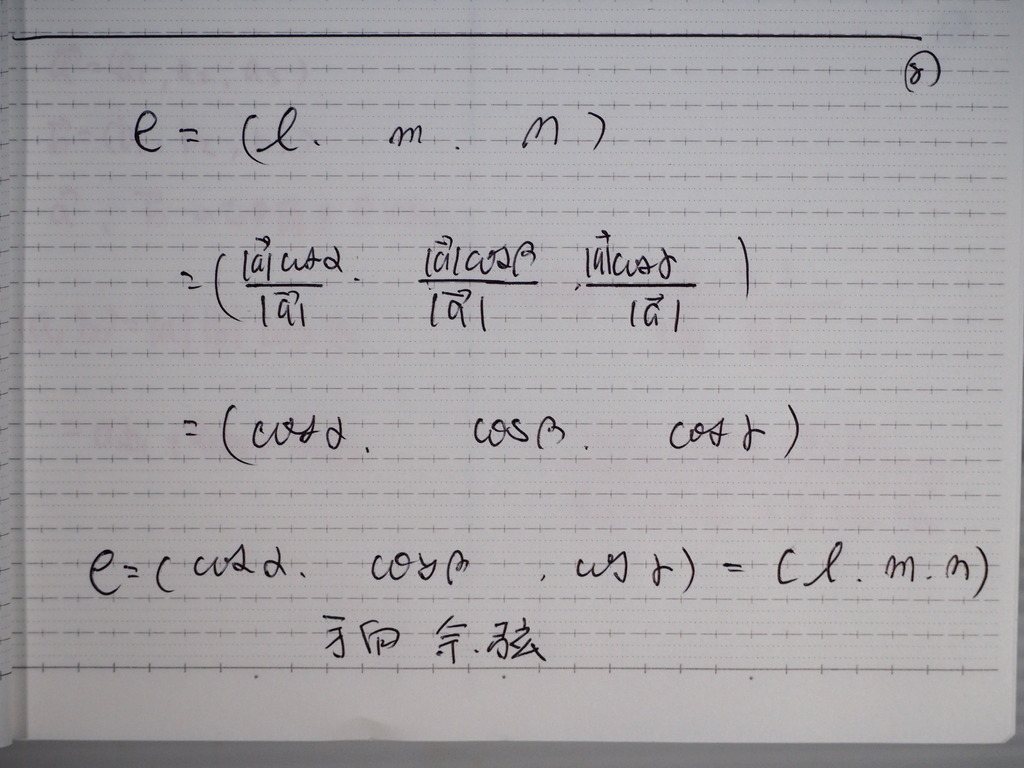 (8)
e = (l. m. n)
= (|a⃗|cosα/|a⃗|. |a⃗|cosβ/|a⃗| . |a⃗|cosγ/|a⃗|)
= (cosα. cosβ. cosγ)
e = (cosα. cosβ . cosγ) = (l. m. n)
方向 余.弦